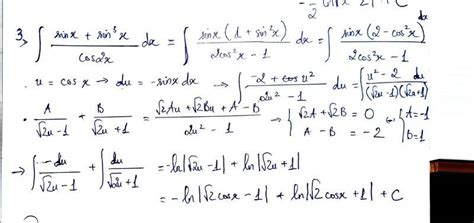 -1/2 ln|x-2| + C
3) ∫ (sinx + sin³x)/(cos2x) dx = ∫ (sinx (1 + sin²x))/(2cos²x - 1) dx = ∫ (sinx (2 - cos²x))/(2cos²x - 1) dx
. u = cos x → du = -sinx dx → ∫ (-2 + cos u²)/(2u² - 1) du = ∫ (u² - 2)/((√2u - 1)(√2u + 1)) du
. A/(√2u - 1) + B/(√2u + 1) = (√2Au + √2Bu + A - B)/(2u² - 1) → { √2A + √2B = 0, A - B = -2 { A = -1, B = 1
→ ∫ -du/(√2u - 1) + ∫ du/(√2u + 1) = -ln|√2u - 1| + ln|√2u + 1|
= -ln|√2cosx - 1| + ln|√2cosx + 1| + C